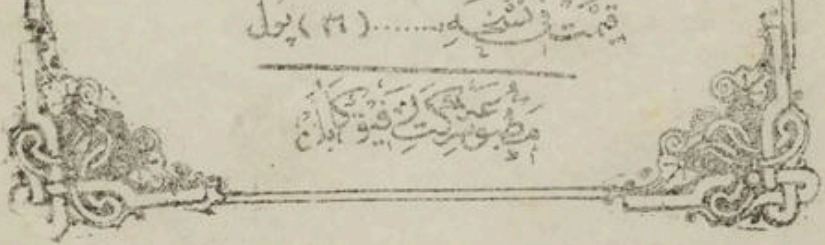 قیمت فی نسخه ........ (۳٦) پول
مطبوعه شرکت رفیق کابل